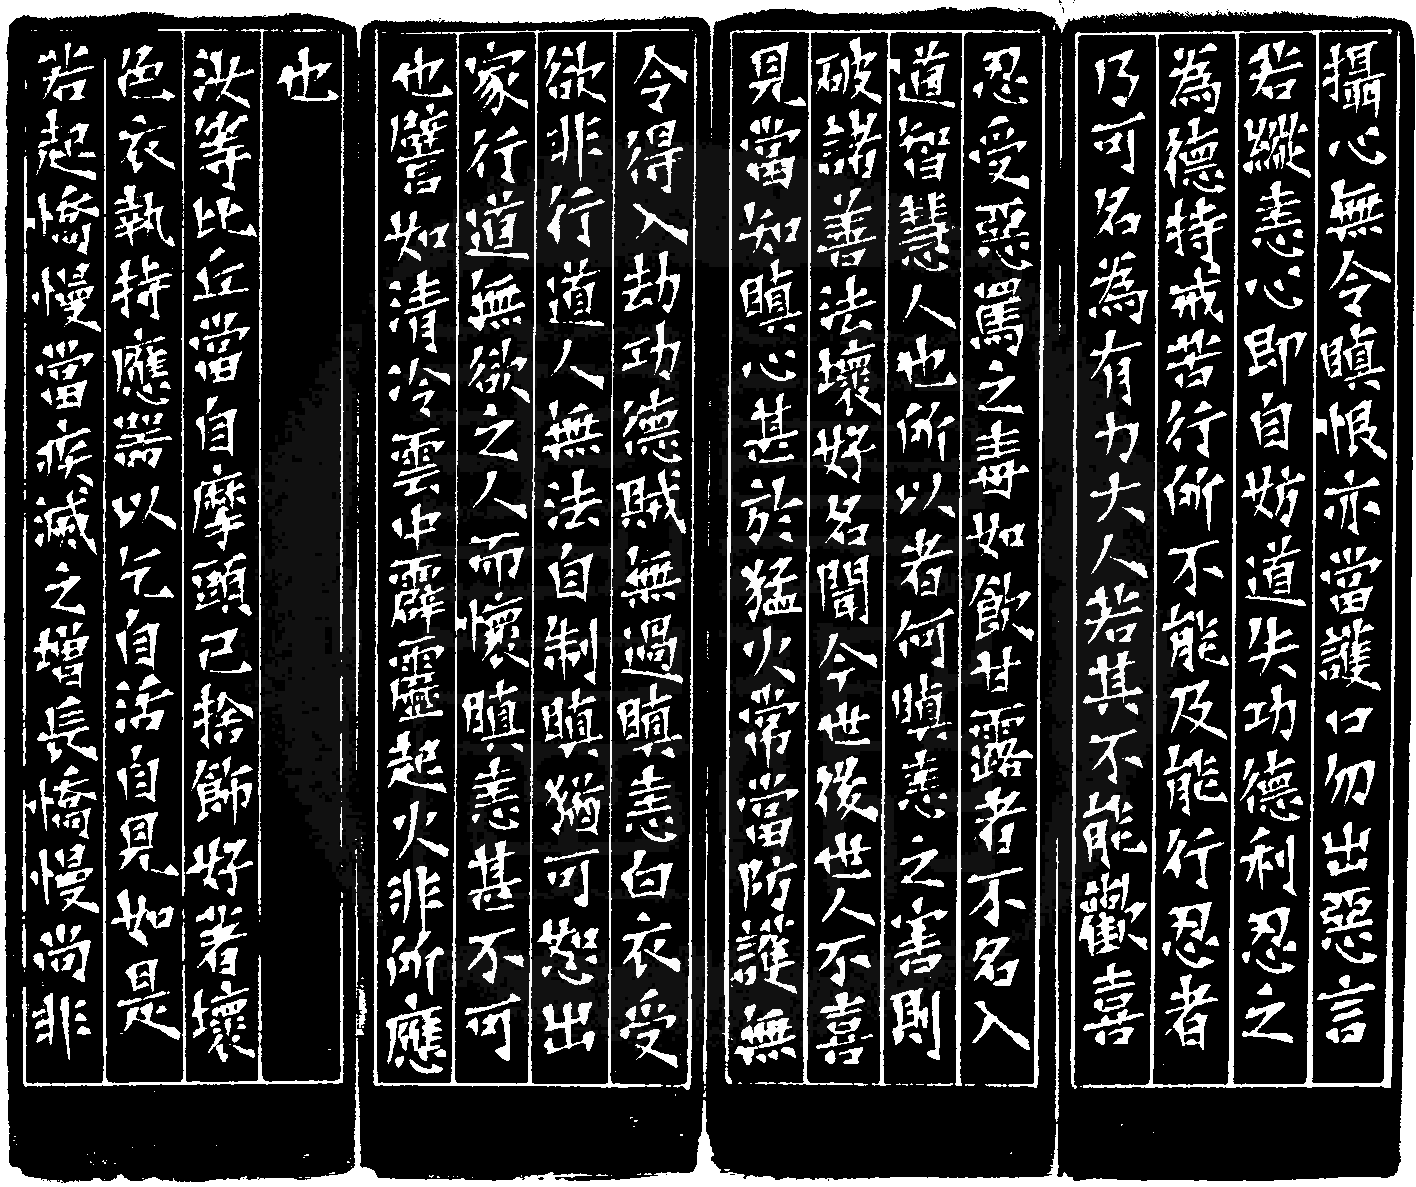 攝心無令瞋恨亦當護口勿出惡言
若縱恚心即自妨道失功德利忍之
為德持戒苦行所不能及能行忍者
乃可名為有力大人若其不能歡喜
忍受惡罵之毒如飲甘露者不名入
道智慧人也所以者何瞋恚之害則
破諸善法壞好名聞今世後世人不喜
見當知瞋心甚於猛火常當防護無
令得入劫功德賊無過瞋恚白衣受
欲非行道人無法自制瞋猶可恕出
家行道無欲之人而懷瞋恚甚不可
也譬如清冷雲中霹靂起火非所應
也
汝等比丘當自摩頭已捨飾好著壞
色衣執持應器以乞自活自見如是
若起憍慢當疾滅之增長憍慢尚非